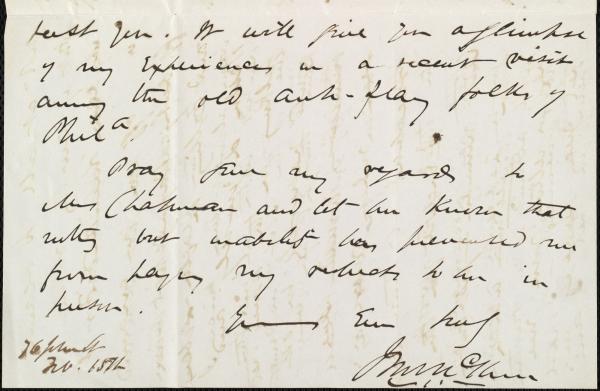 test you. It will give you a glimpse
of my experiences in a recent visit
among the old anti-slavy folks of
Phila.
Pray give my regards to
Mrs Chapman and let her know that
nothg but inability has prevented me
from paying my respects to her in
person.
Yours Ever truly
J. M. McKim
Feb. 15th